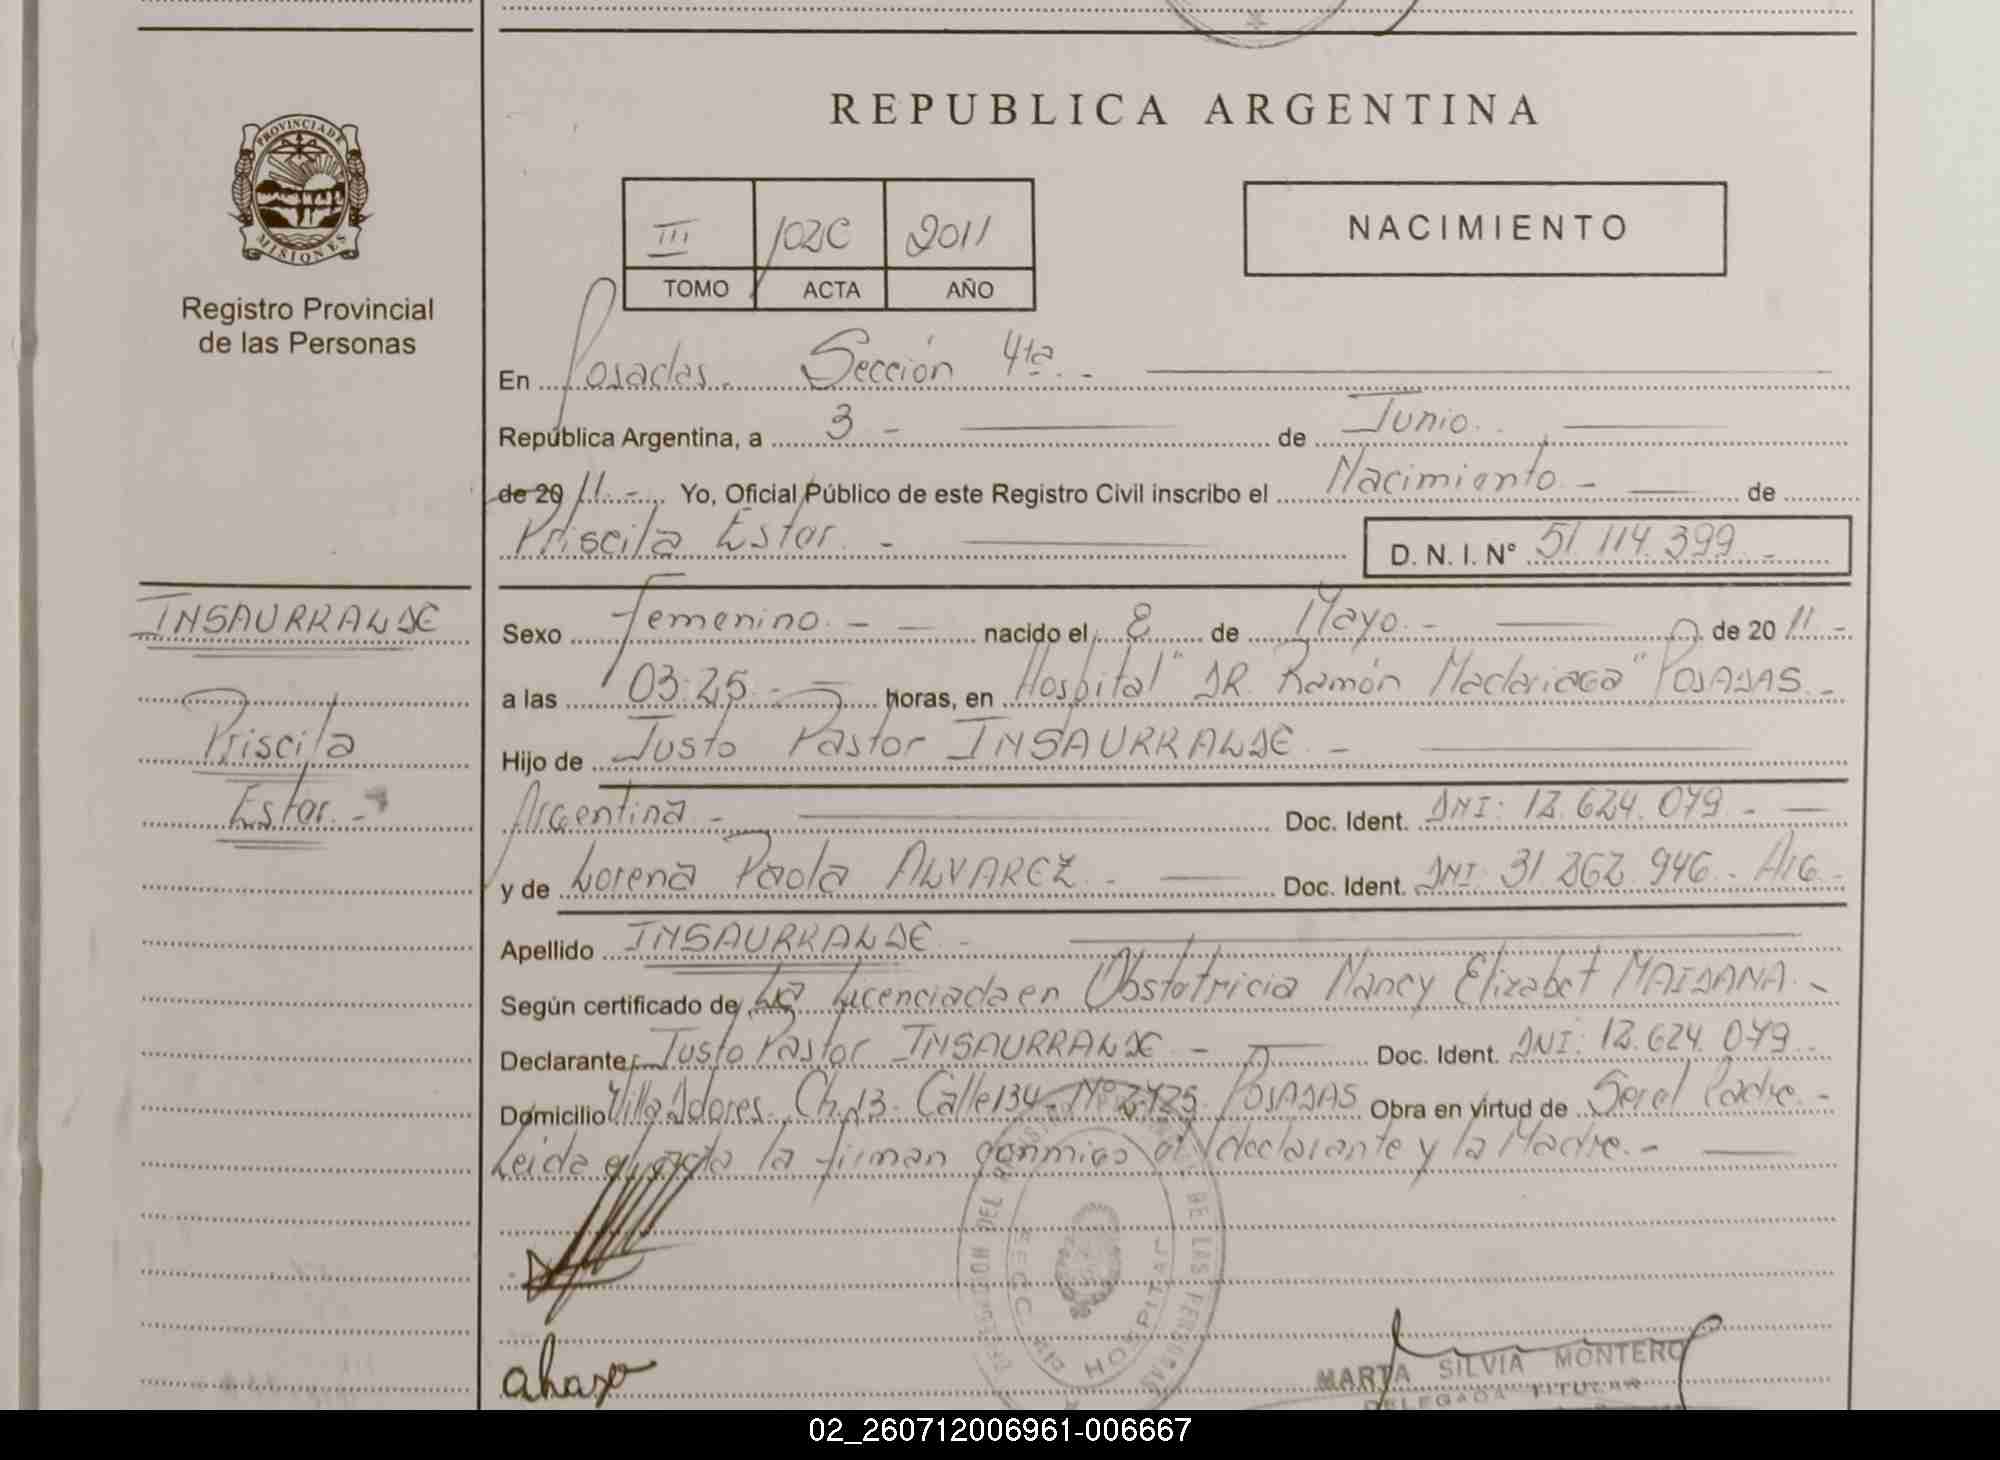 REPUBLICA ARGENTINA
PROVINCIA DE
MISIONES
Registro Provincial
de las Personas
III 2011
TOMO ACTA AÑO
NACIMIENTO
En Posadas. Sección 4ta. -
República Argentina, a 3 - de Junio.
de 20 11.- Yo, Oficial Público de este Registro Civil inscribo el Nacimiento - de
Priscila Ester. - D. N. I. N° 51 114.399 -
INSAURRALDE
Priscila
Ester. -
Sexo Femenino. - - nacido el 8 de Mayo. - de 20 11 -
a las 03:25 - horas, en Hospital "DR. Ramón Madariaga" POSADAS. -
Hijo de Justo Pastor INSAURRALDE -
Argentina - Doc. Ident. DNI: 12.624.079 -
y de Lorena Paola ALVAREZ - Doc. Ident. DNI: 31 262.946 - Arg. -
Apellido INSAURRALDE -
Según certificado de La Licenciada en Obstetricia Nancy Elizabet MAIDANA. -
Declarante Justo Pastor INSAURRALDE - Doc. Ident. DNI: 12.624.079
Domicilio Villa Ch. 13. Calle 134 - N° POSADAS Obra en virtud de Ser el Padre. -
Leida el acta la firman conmigo el declarante y la Madre. -
DEL
DE LAS PERSONAS
HOSPITAL
MARTA SILVIA MONTERO
DELEGADA TITULAR
02_260712006961-006667